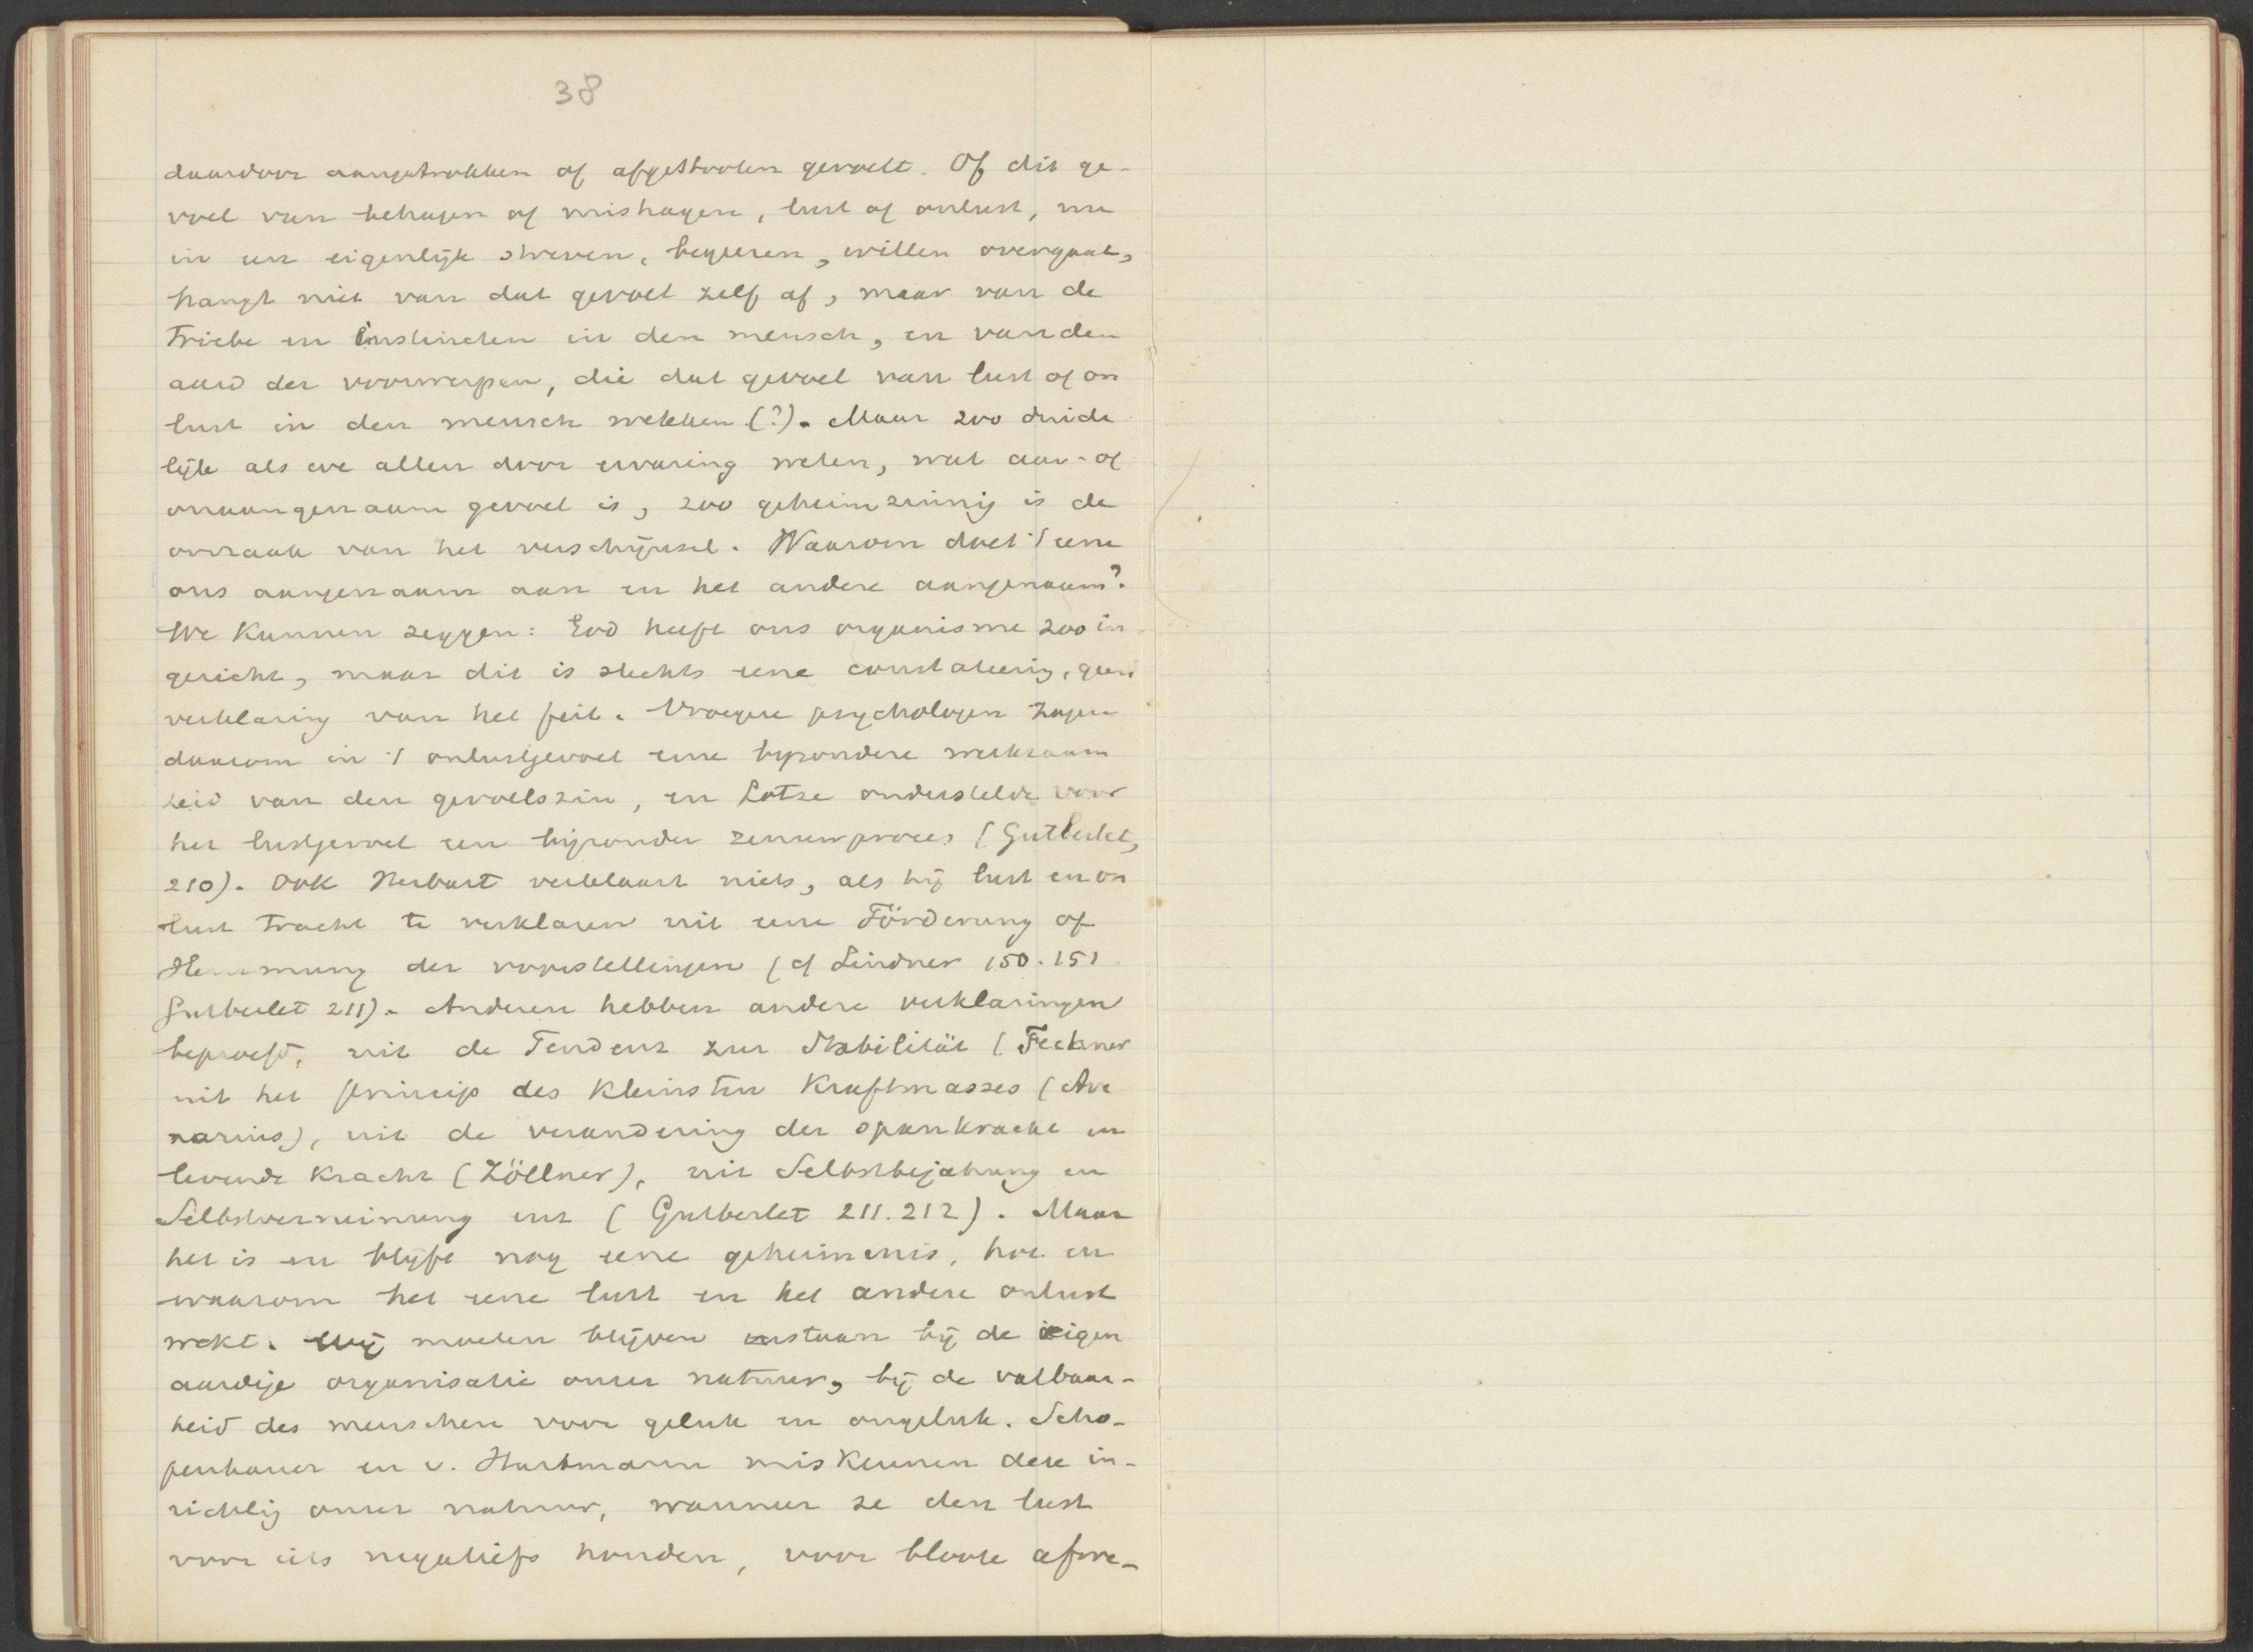 38
daardoor aangetrokken of afgestooten gevoelt. Of dit ge-
voel van behagen of mishagen, lust of onlust, nu
in een eigenlijk streven, begeeren, willen overgaat,
hangt niet van dat gevoel zelf af, maar van de
Triebe en Instincten in den mensch, en van den
aard der voorwerpen, die dat gevoel van lust of on
lust in den mensch wekken (?). Maar zoo duide
lijk als we allen door ervaring weten, wat aan- of
onaangenaam gevoel is, zoo geheimzinnig is de
oorzaak van het verschijnsel. Waarom doet 't eene
ons aangenaam aan en het andere aangenaam?
We kunnen zeggen: God heeft ons organisme zoo in
gericht, maar dit is slechts eene constateering, geen
verklaring van het feit. Vroegere psychologen zagen
daarom in 't onlustgevoel eene byzondere werkzaam
heid van den gevoelszin, en Lotze onderstelde voor
het lustgevoel een bijzonder zenuwproces (Gutberlet,
210). Ook Herbart verklaart niets, als hij lust en on
lust tracht te verklaren uit eene Förderung of
Hemmung der voorstellingen (cf Lindner 150.151
Gutberlet 211). Anderen hebben andere verklaringen
beproefd, uit de Tendenz zur Stabilität (Fechner
uit het princip des kleinsten Kraftmasses (Ave
narius), uit de verandering der spankracht in
levende kracht (Zöllner), uit Selbstbejahung en
Selbstverneinung enz (Gutberlet 211.212). Maar
het is en blijft nog eene geheimenis, hoe en
waarom het eene lust en het andere onlust
wekt. Wij moeten blijven staan bij de eigen
aardige organisatie onzer natuur, bij de vatbaar-
heid des menschen voor geluk en ongeluk. Scho-
penhauer en v. Hartmann miskennen deze in-
richtig onzer natuur, wanneer ze den lust
voor iets negatiefs houden, voor bloote afwe-